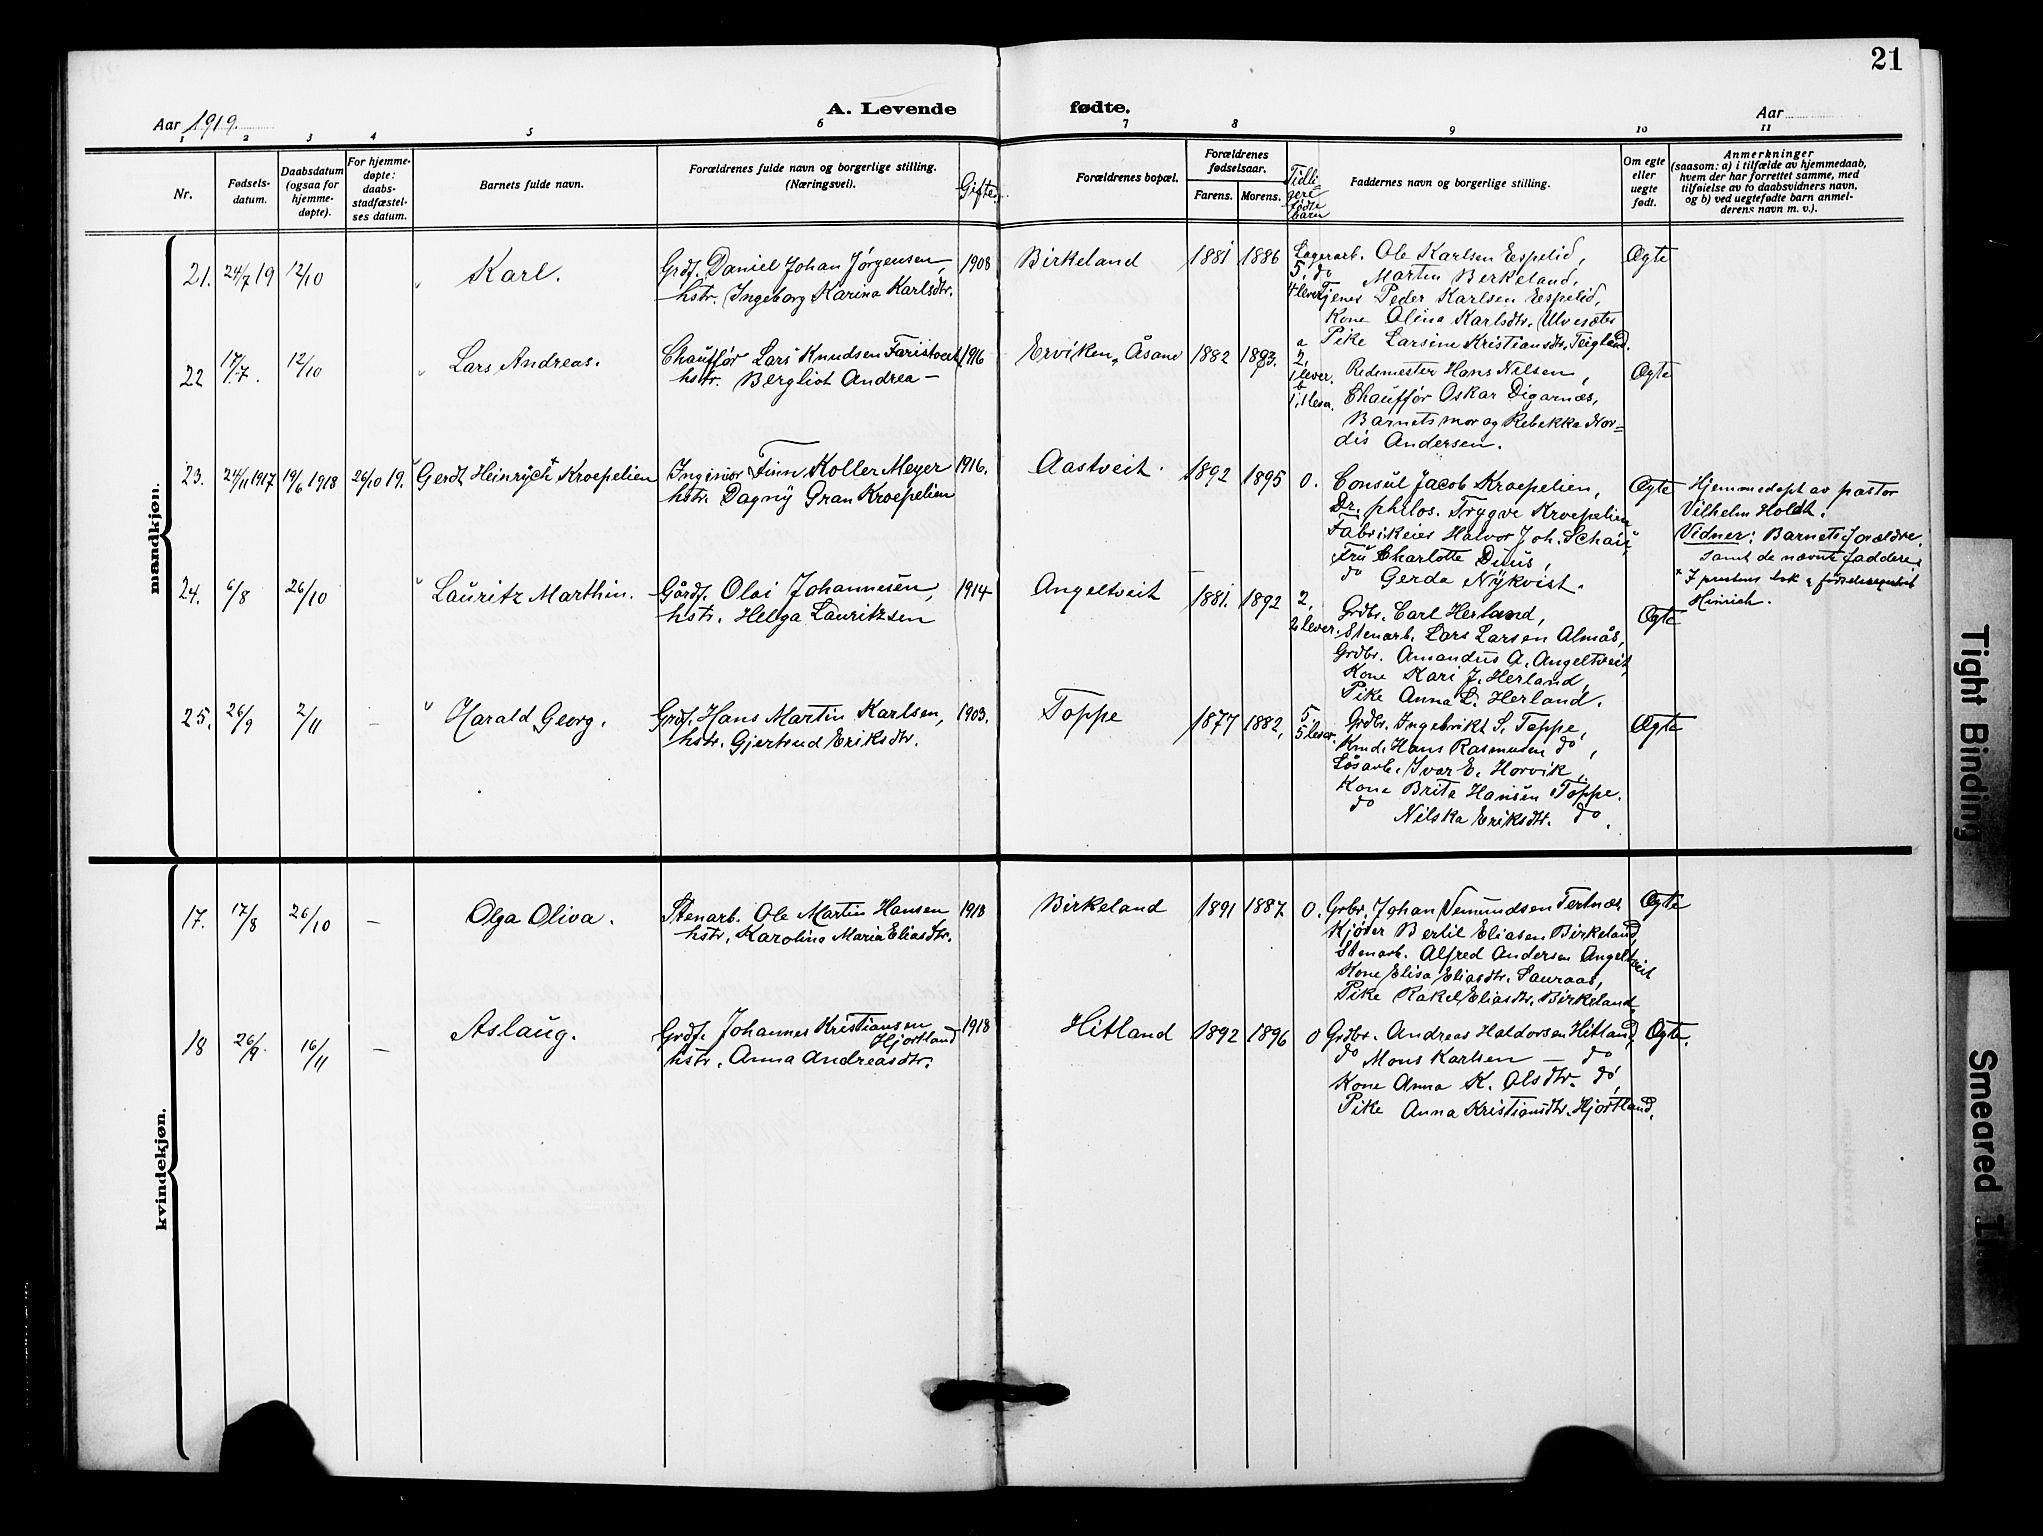 21
A. Levende fødte.
Aar 1919.
Aar
1 2 3 4 5 6 7 8 9 10 11
Nr.
Fødsels-
datum.
Daabsdatum
(ogsaa for
hjemme-
døpte).
For hjemme-
døpte:
daabs-
stadfæstel-
ses datum.
Barnets fulde navn.
Forældrenes fulde navn og borgerlige stilling.
(Næringsvei).
Gifte.
Forældrenes bopæl.
Forældrenes
fødselsaar.
Farens. Morens.
Tidli-
gere
fødte
barn
Faddernes navn og borgerlige stilling.
Om egte
eller
uegte
født.
Anmerkninger
(saasom: a) i tilfælde av hjemmedaab,
hvem der har forrettet samme, med
tilføielse av to daabsvidners navn,
og b) ved uegtefødte barn anmel-
derens navn m. v.).
mandkjøn.
21. 24/7 19 12/10 " Karl.
Grdf. Daniel Johan Jørgensen,
hstr. Ingeborg Karina Karlsdtr.
1908 Birkeland 1881 1886
5.
4 lever
Lagerarb. Ole Karlsen Espelid,
do Martin Berkeland,
Tjener Peder Karlsen Espelid,
Kone Olina Karlsdtr. Ulvesæter
Pike Larsine Kristiansdtr. Teigland.
Ægte
22 17/7. 12/10 " Lars Andreas.
Chauffør Lars Knudsen Faristveit
hstr. Bergliot Andrea —
1916 Erviken, Åsane 1882 1893.
a
2,
1 lever.
b
1, 1 lever.
Redemester Hans Nilsen,
Chauffør Oskar Digarnæs,
Barnets mor og Rebekka Nor=
dis Andersen.
Ægte
23. 24/11 1917 19/6 1918 26/10 19. " Gerdt Heinrych* Kroepelien
Ingeniør Finn Koller Meyer
hstr. Dagny Gran Kroepelien
1916. Aastveit. 1892 1895 0.
Consul Jacob Kroepelien,
Dr. philos. Trygve Kroepelien
Fabrikeier Halvor Joh. Schau,
Fru Charlotte Duus,
do Gerda Nykvist.
Ægte
Hjemmedøpt av pastor
Vilhelm Holdt.
Vidner: Barnets forældre
samt de nævnte faddere
* I prestens bok & fødselsregistret
Hinrich.
24. 6/8 26/10 " Lauritz Marthin.
Gårdf. Olai Johannesen,
hstr. Helga Lauritzsen
1914 Angeltveit 1881. 1892
2,
2 lever.
Grdbr. Carl Herland,
Stenarb. Lars Larsen Almås,
Grdbr. Amandus A. Angeltveit,
Kone Kari J. Herland,
Pike Anna L. Herland.
Ægte
25. 26/9 2/11 — " Harald Georg.
Grdf. Hans Martin Karlsen,
hstr. Gjertrud Eriksdtr.
1903. Toppe 1877 1882,
5.
5 lever.
Grdbr. Ingebrikt S. Toppe,
Kmd. Hans Rasmussen do,
Løsarb. Ivar E. Horvik,
Kone Brita Hansen Toppe.
do Nilska Eriksdtr. do.
Ægte
kvindekjøn.
17. 17/8 26/10 — Olga Oliva.
Stenarb. Ole Martin Hansen
hstr. Karolina Maria Eliasdtr.
1918 Birkeland 1891 1887 0.
Grbr. Johan Vemundsen Tertnæs
Kjører Bertil Eliasen Birkeland,
Stenarb. Alfred Andersen Angeltveit
Kone Elisa Eliasdtr. Sauraas,
Pike Rakel Eliasdtr. Birkeland.
Ægte
18 26/9. 16/11 — Aslaug.
Grdf. Johannes Kristiansen
Hjortland
hstr. Anna Andreasdtr.
1918 Hitland 1892 1896 0
Grdbr. Andreas Haldorsen Hitland,
do Mons Karlsen — do
Kone Anna K. Olsdtr. do,
Pike Anna Kristiansdtr. Hjortland.
Ægte.
Tight Binding
Smeared